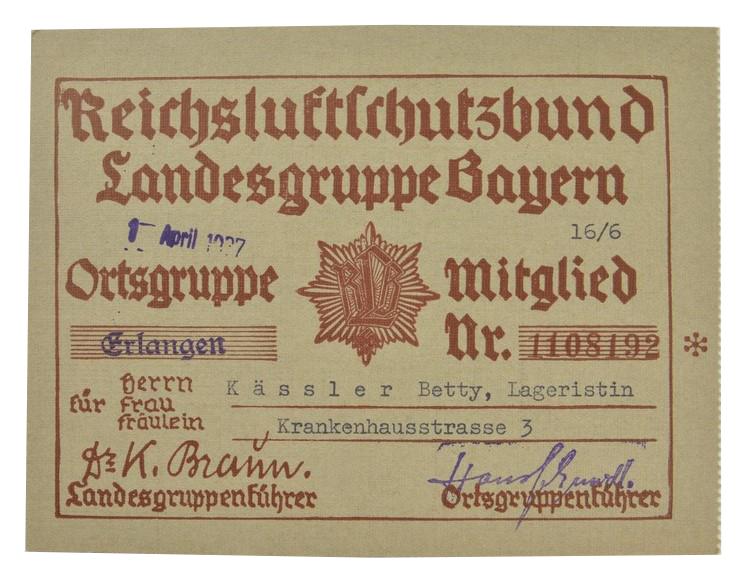 Reichsluftschutzbund
Landesgruppe Bayern
April 1937
16/6
Ortsgruppe
Erlangen
RLB
Mitglied
Nr. 1108192 *
für Herrn Frau Fräulein
Kässler Betty, Lageristin
Krankenhausstrasse 3
Dr K. Braun.
Landesgruppenführer
Ortsgruppenführer